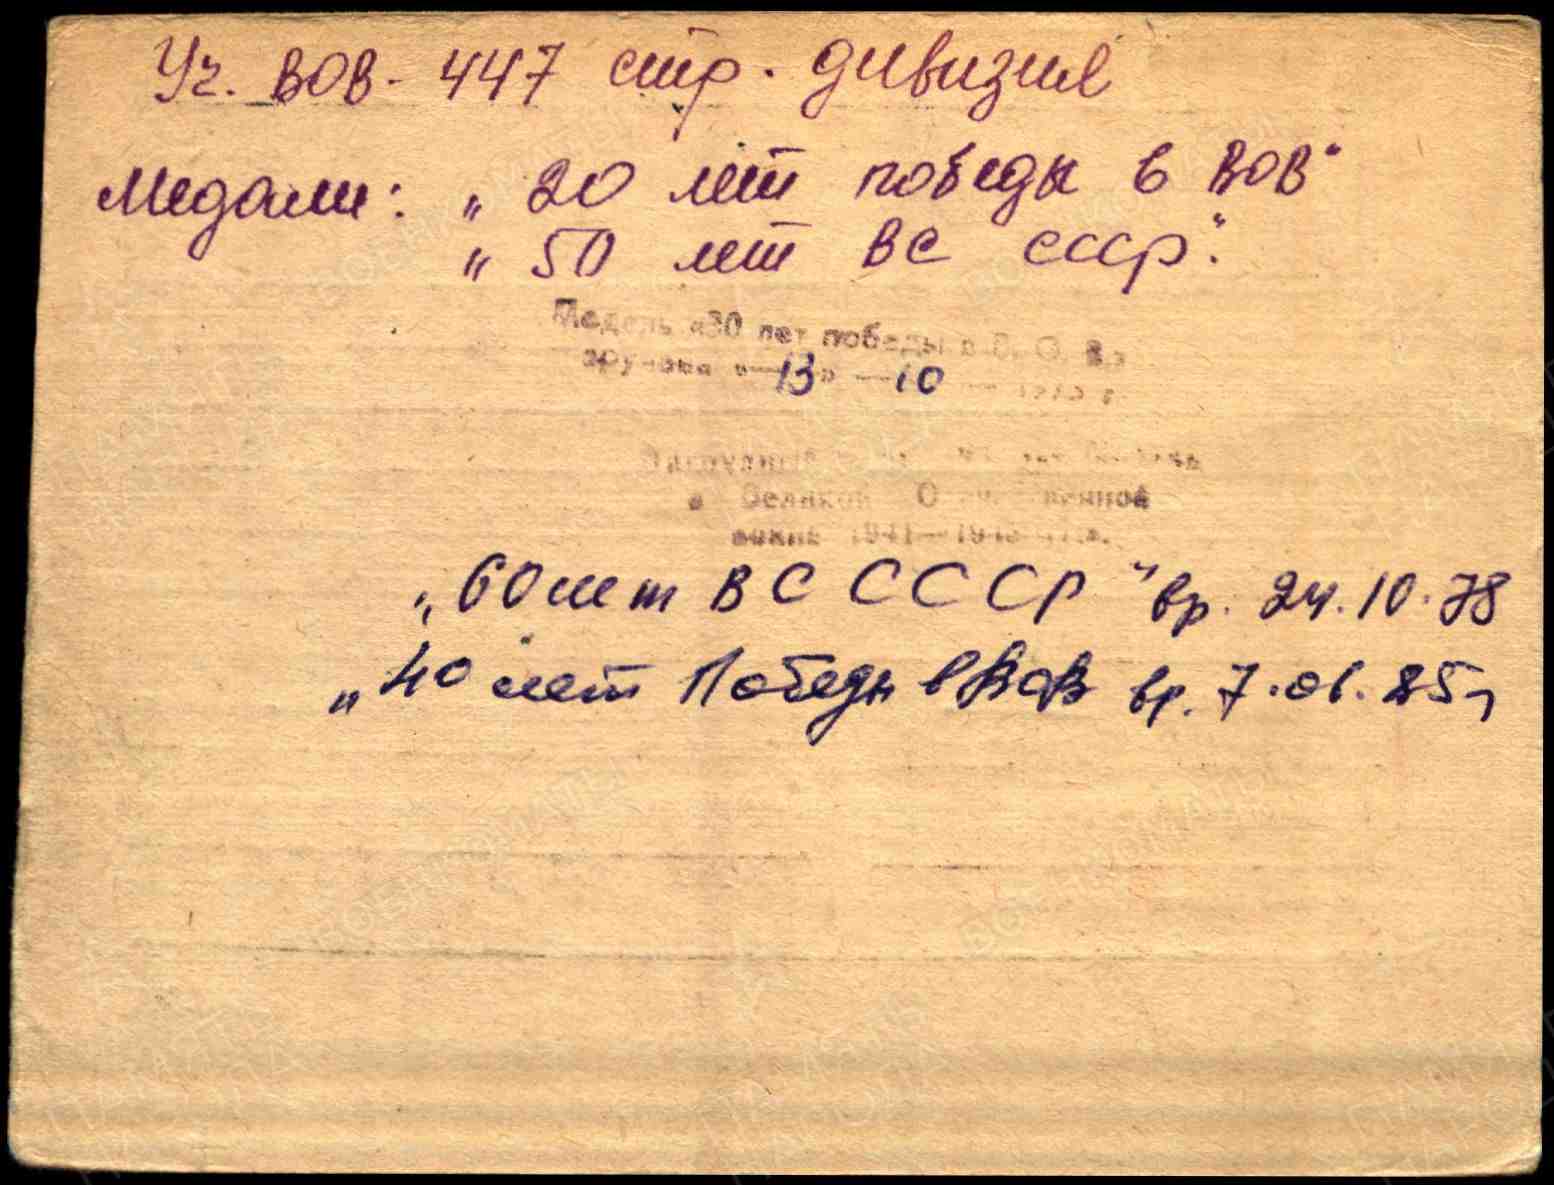 Уч. ВОВ - 447 стр. дивизия
Медали: „20 лет победы в ВОВ"
„50 лет ВС СССР".
Медаль «30 лет победы в В. О. В.»
вручена «13» 10
в Великой
войне 1941—1945 г.г.
„60 лет ВС СССР" вр. 24.10.78
„40 лет Победы в ВОВ вр. 7.01.85г